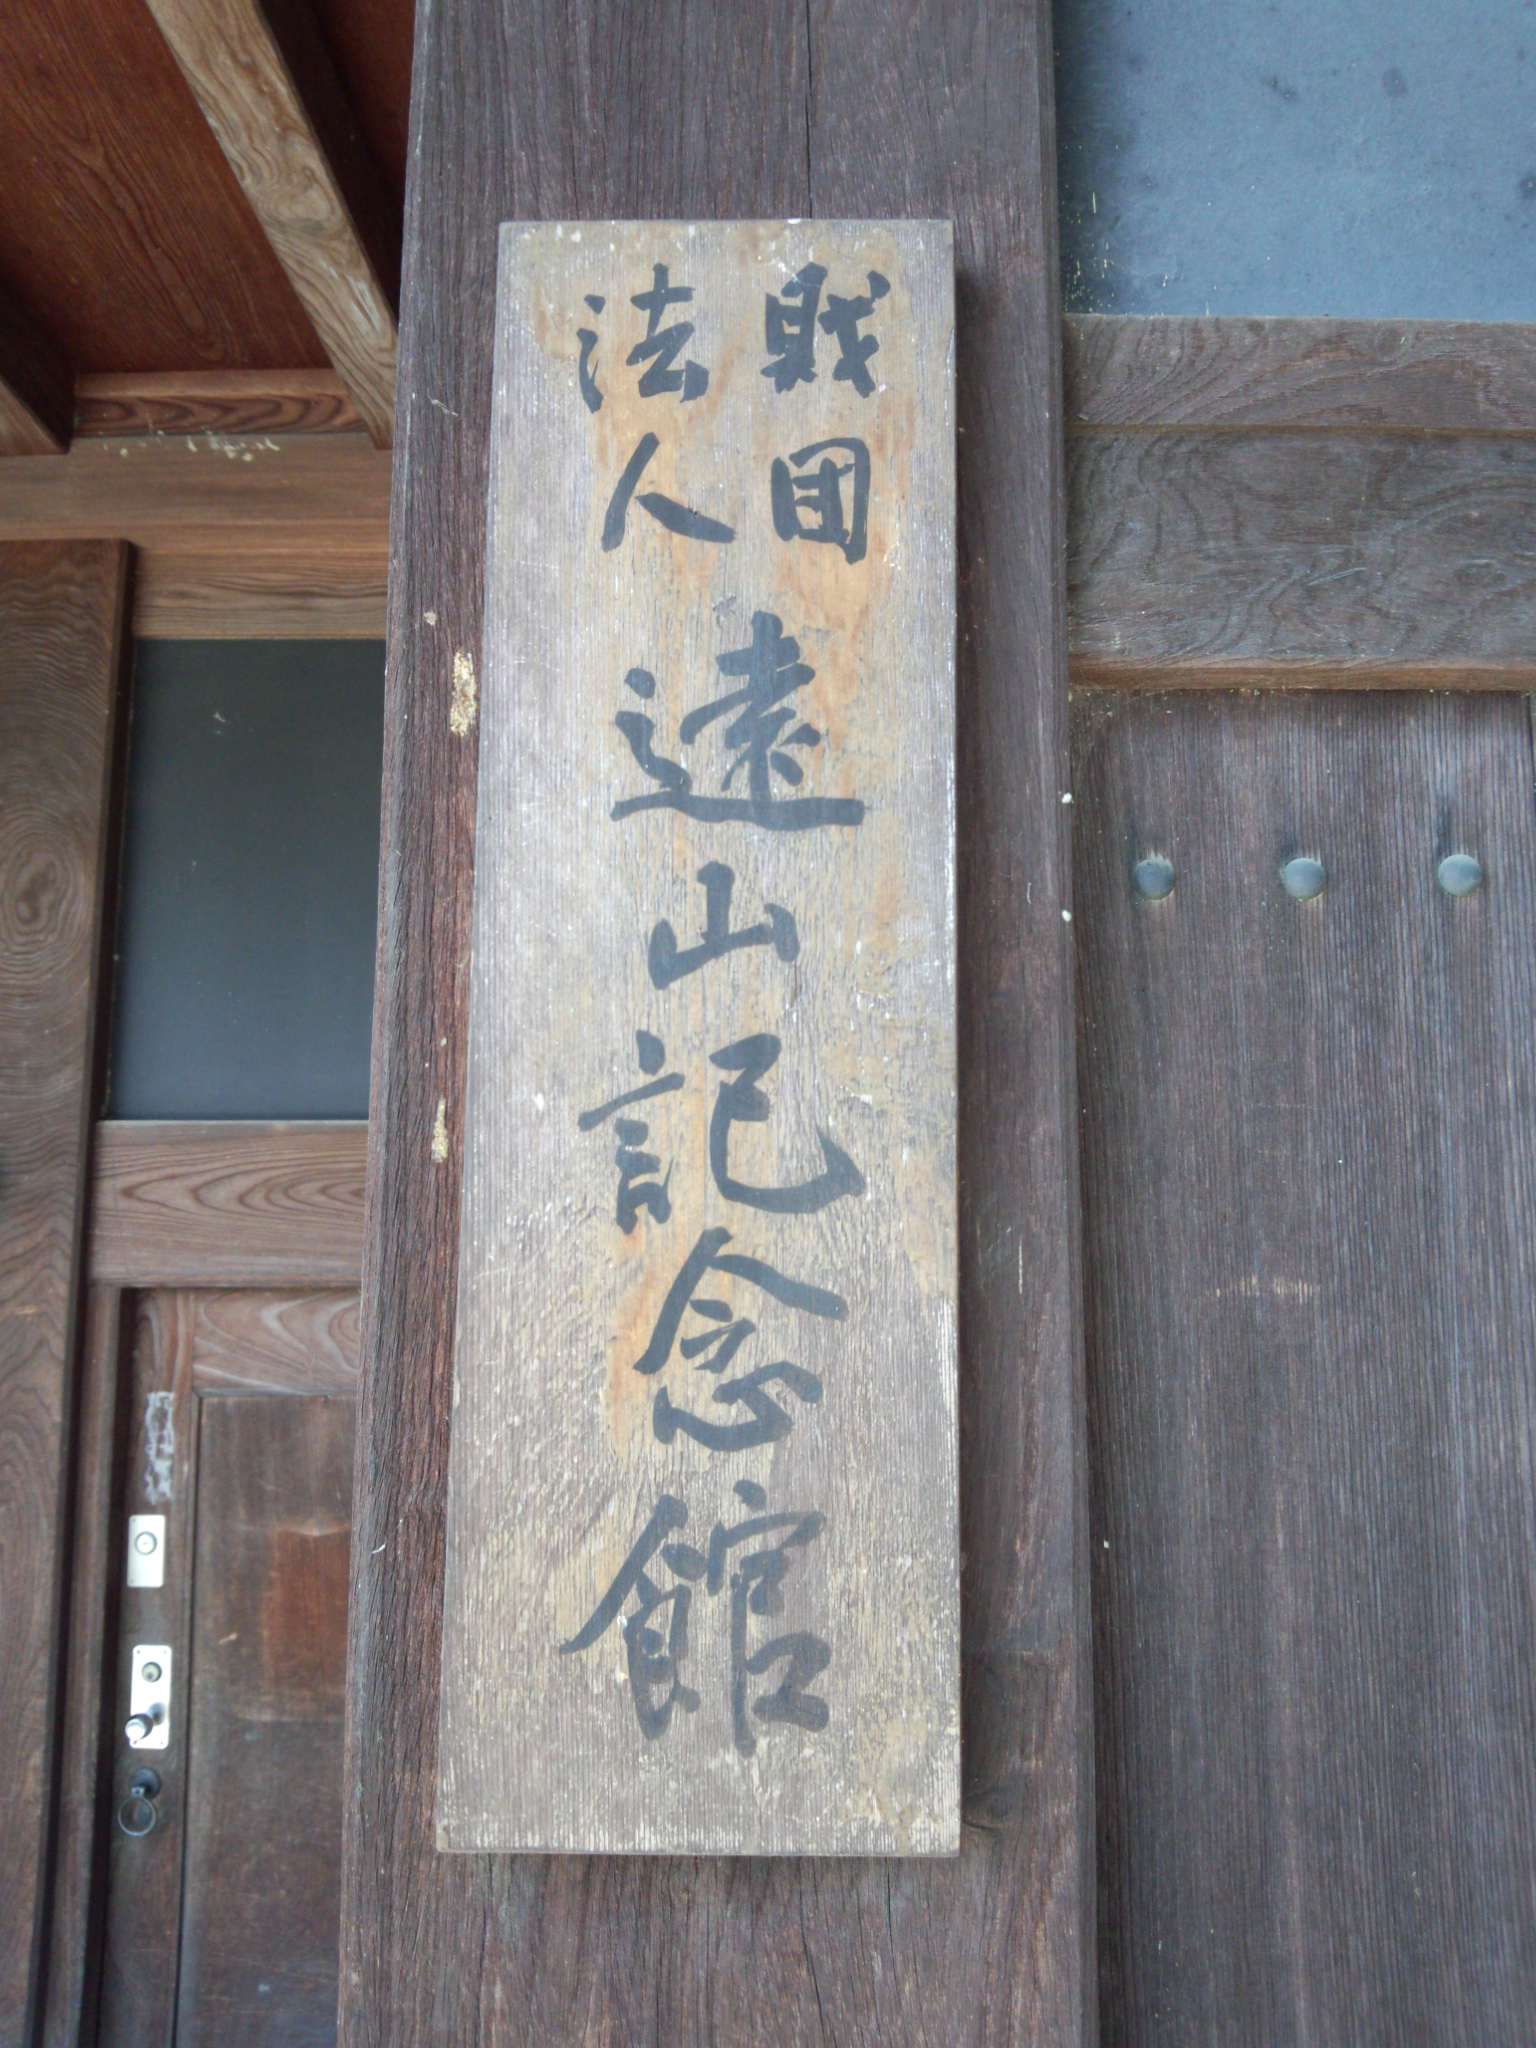 財団
法人
遠山記念館